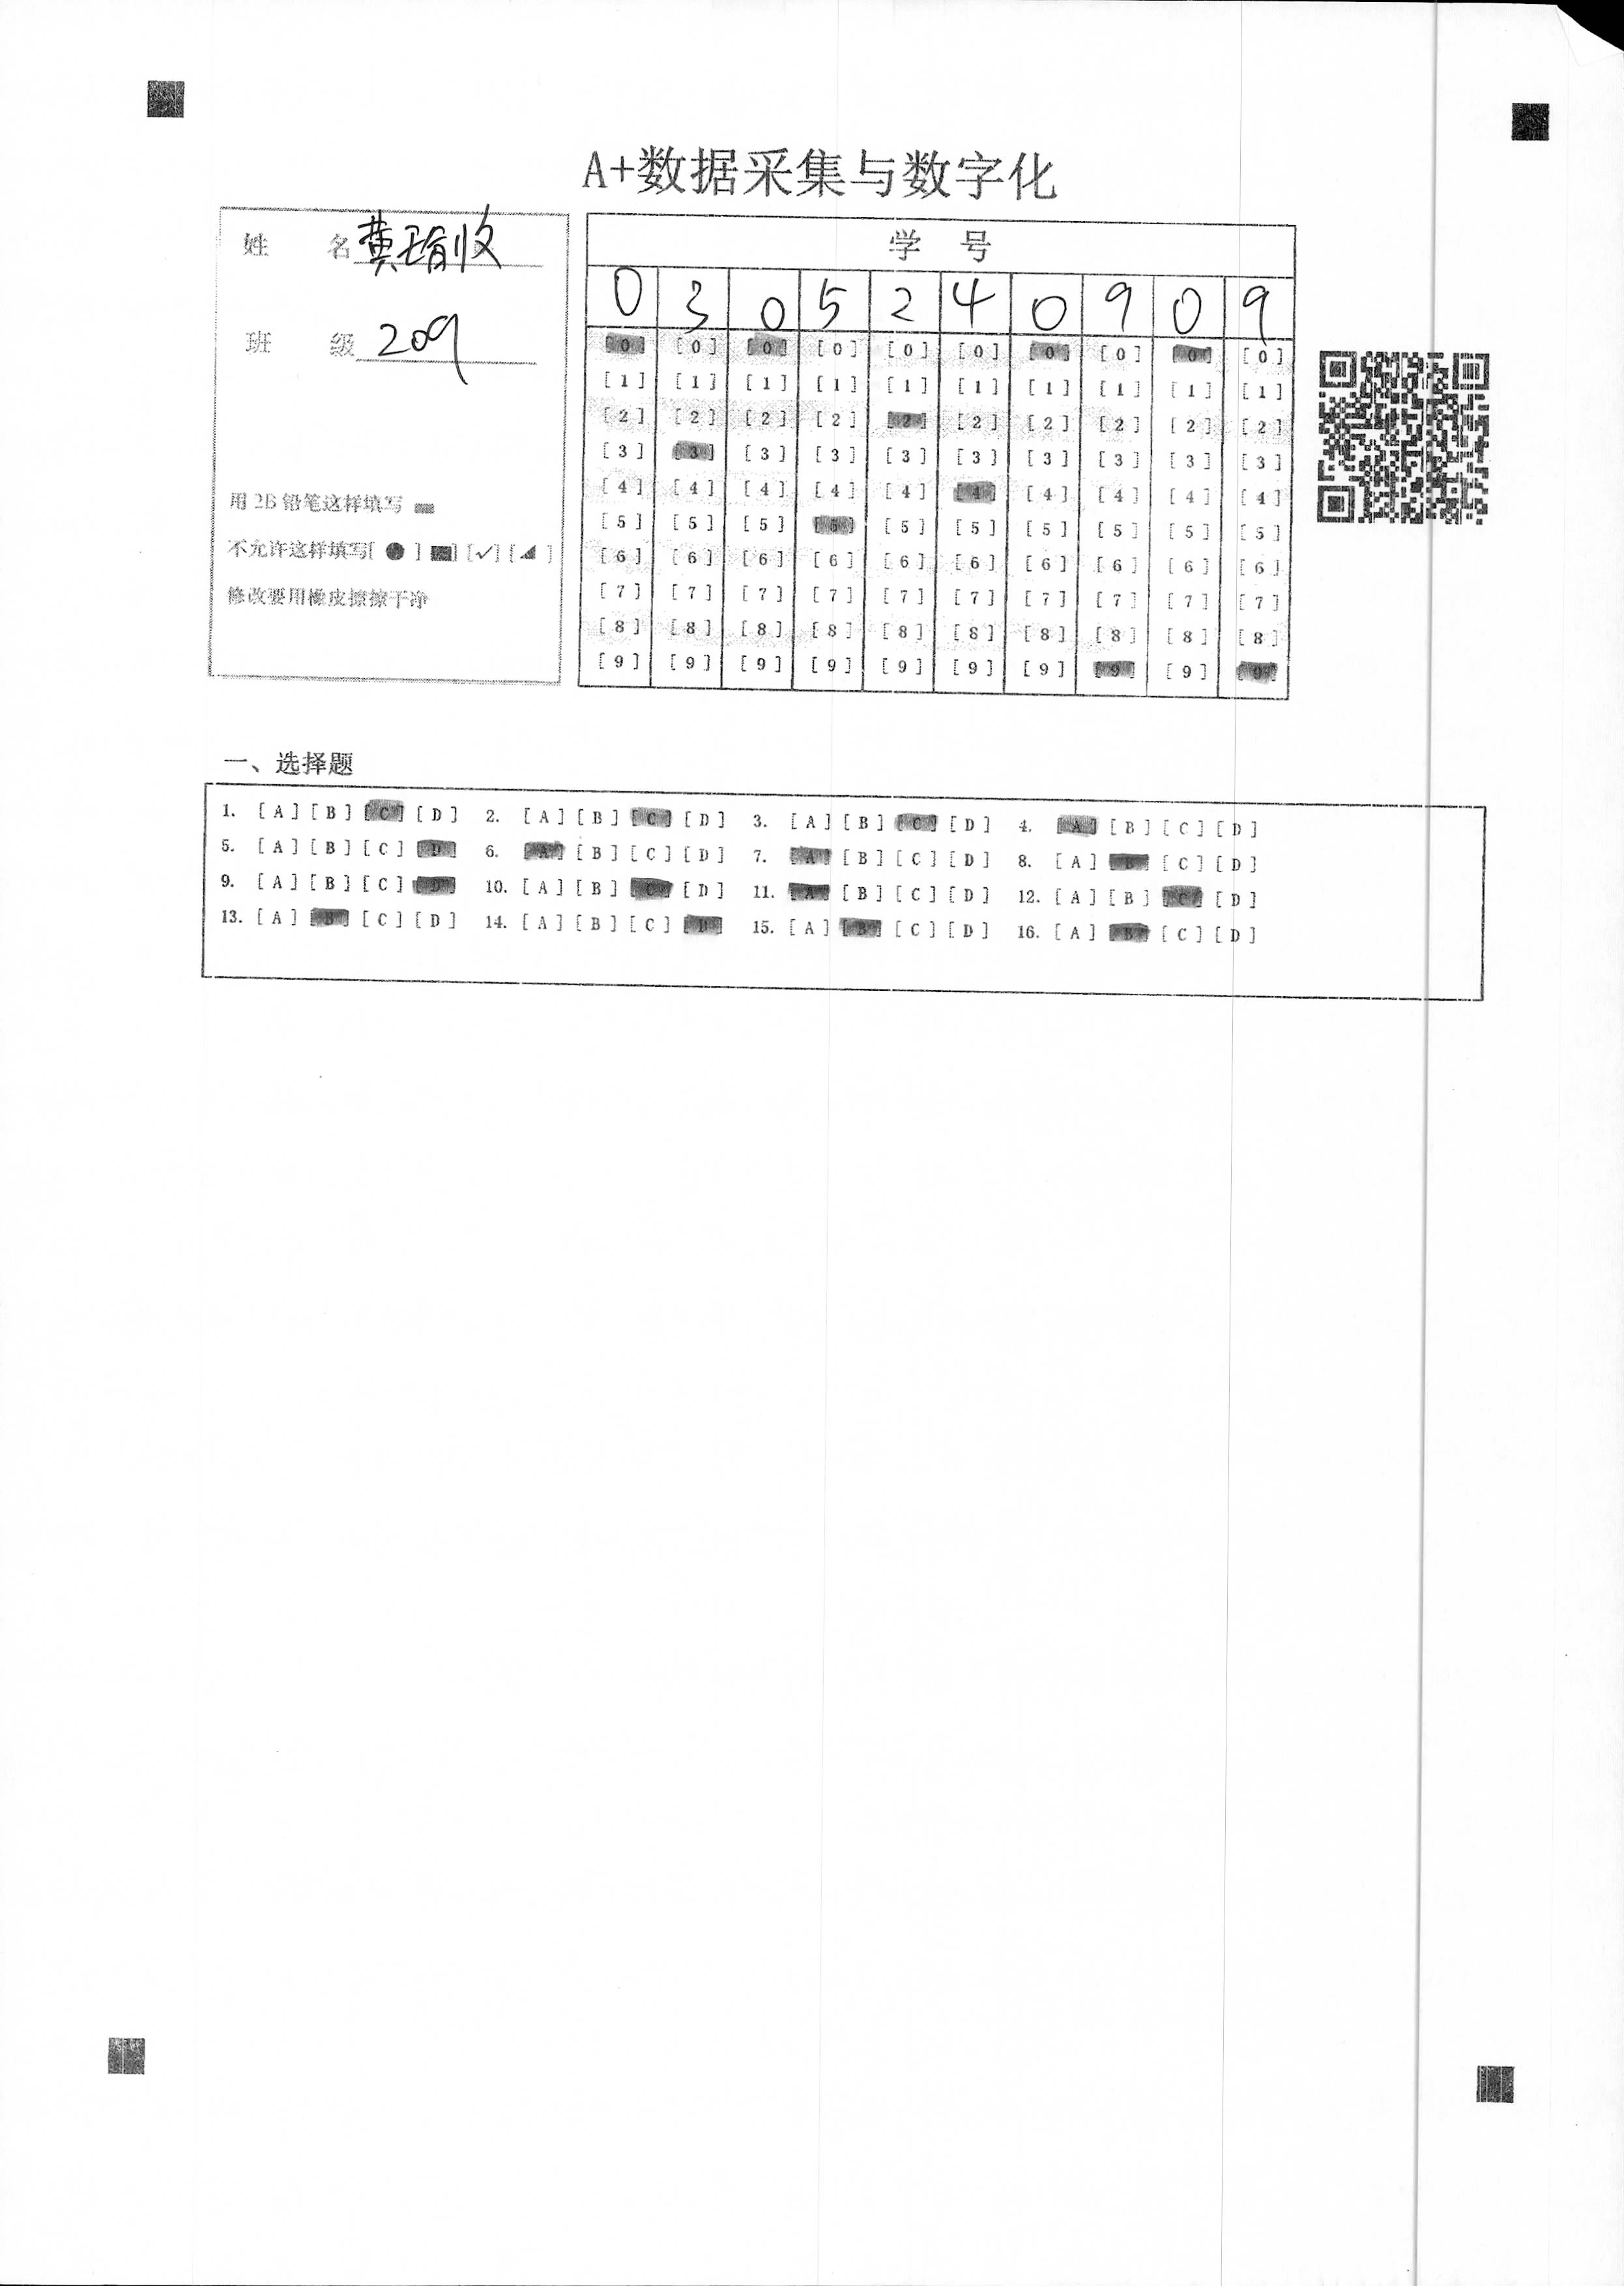 A+数据采集与数字化
姓 名
班 级 209
用2B铅笔这样填写
不允许这样填写[ ● ] [■] [✓] [◢ ]
修改要用橡皮擦擦干净
学 号
0 3 0 5 2 4 0 9 0 9
[0] [0] [0] [0] [0] [0] [0] [0] [0] [0]
[1] [1] [1] [1] [1] [1] [1] [1] [1] [1]
[2] [2] [2] [2] [2] [2] [2] [2] [2] [2]
[3] [3] [3] [3] [3] [3] [3] [3] [3] [3]
[4] [4] [4] [4] [4] [4] [4] [4] [4] [4]
[5] [5] [5] [5] [5] [5] [5] [5] [5] [5]
[6] [6] [6] [6] [6] [6] [6] [6] [6] [6]
[7] [7] [7] [7] [7] [7] [7] [7] [7] [7]
[8] [8] [8] [8] [8] [8] [8] [8] [8] [8]
[9] [9] [9] [9] [9] [9] [9] [9] [9] [9]
一、选择题
1. [A] [B] [C] [D] 2. [A] [B] [C] [D] 3. [A] [B] [C] [D] 4. [A] [B] [C] [D]
5. [A] [B] [C] [D] 6. [A] [B] [C] [D] 7. [A] [B] [C] [D] 8. [A] [B] [C] [D]
9. [A] [B] [C] [D] 10. [A] [B] [C] [D] 11. [A] [B] [C] [D] 12. [A] [B] [C] [D]
13. [A] [B] [C] [D] 14. [A] [B] [C] [D] 15. [A] [B] [C] [D] 16. [A] [B] [C] [D]